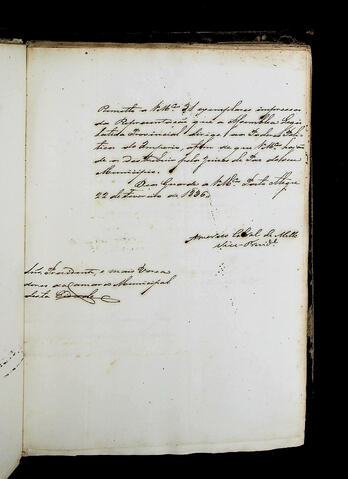 Remetto a VMces 31 exemplares impressos
da Representação que a Assemblea Legis
lativa Provincial dirige aos Poderes Poli
ticos do Imperio, afim de que VMces hajão
de os destribuir pelos Juizes de Paz desse
Municipio.
Deos Guarde a VMces Porto Alegre
22 de Fevereiro de 1836.
Americo Cabral de Mello
Vice-Presid.e
Snrs. Presidente, e mais Verea
dores da Camara Municipal
desta Cidade